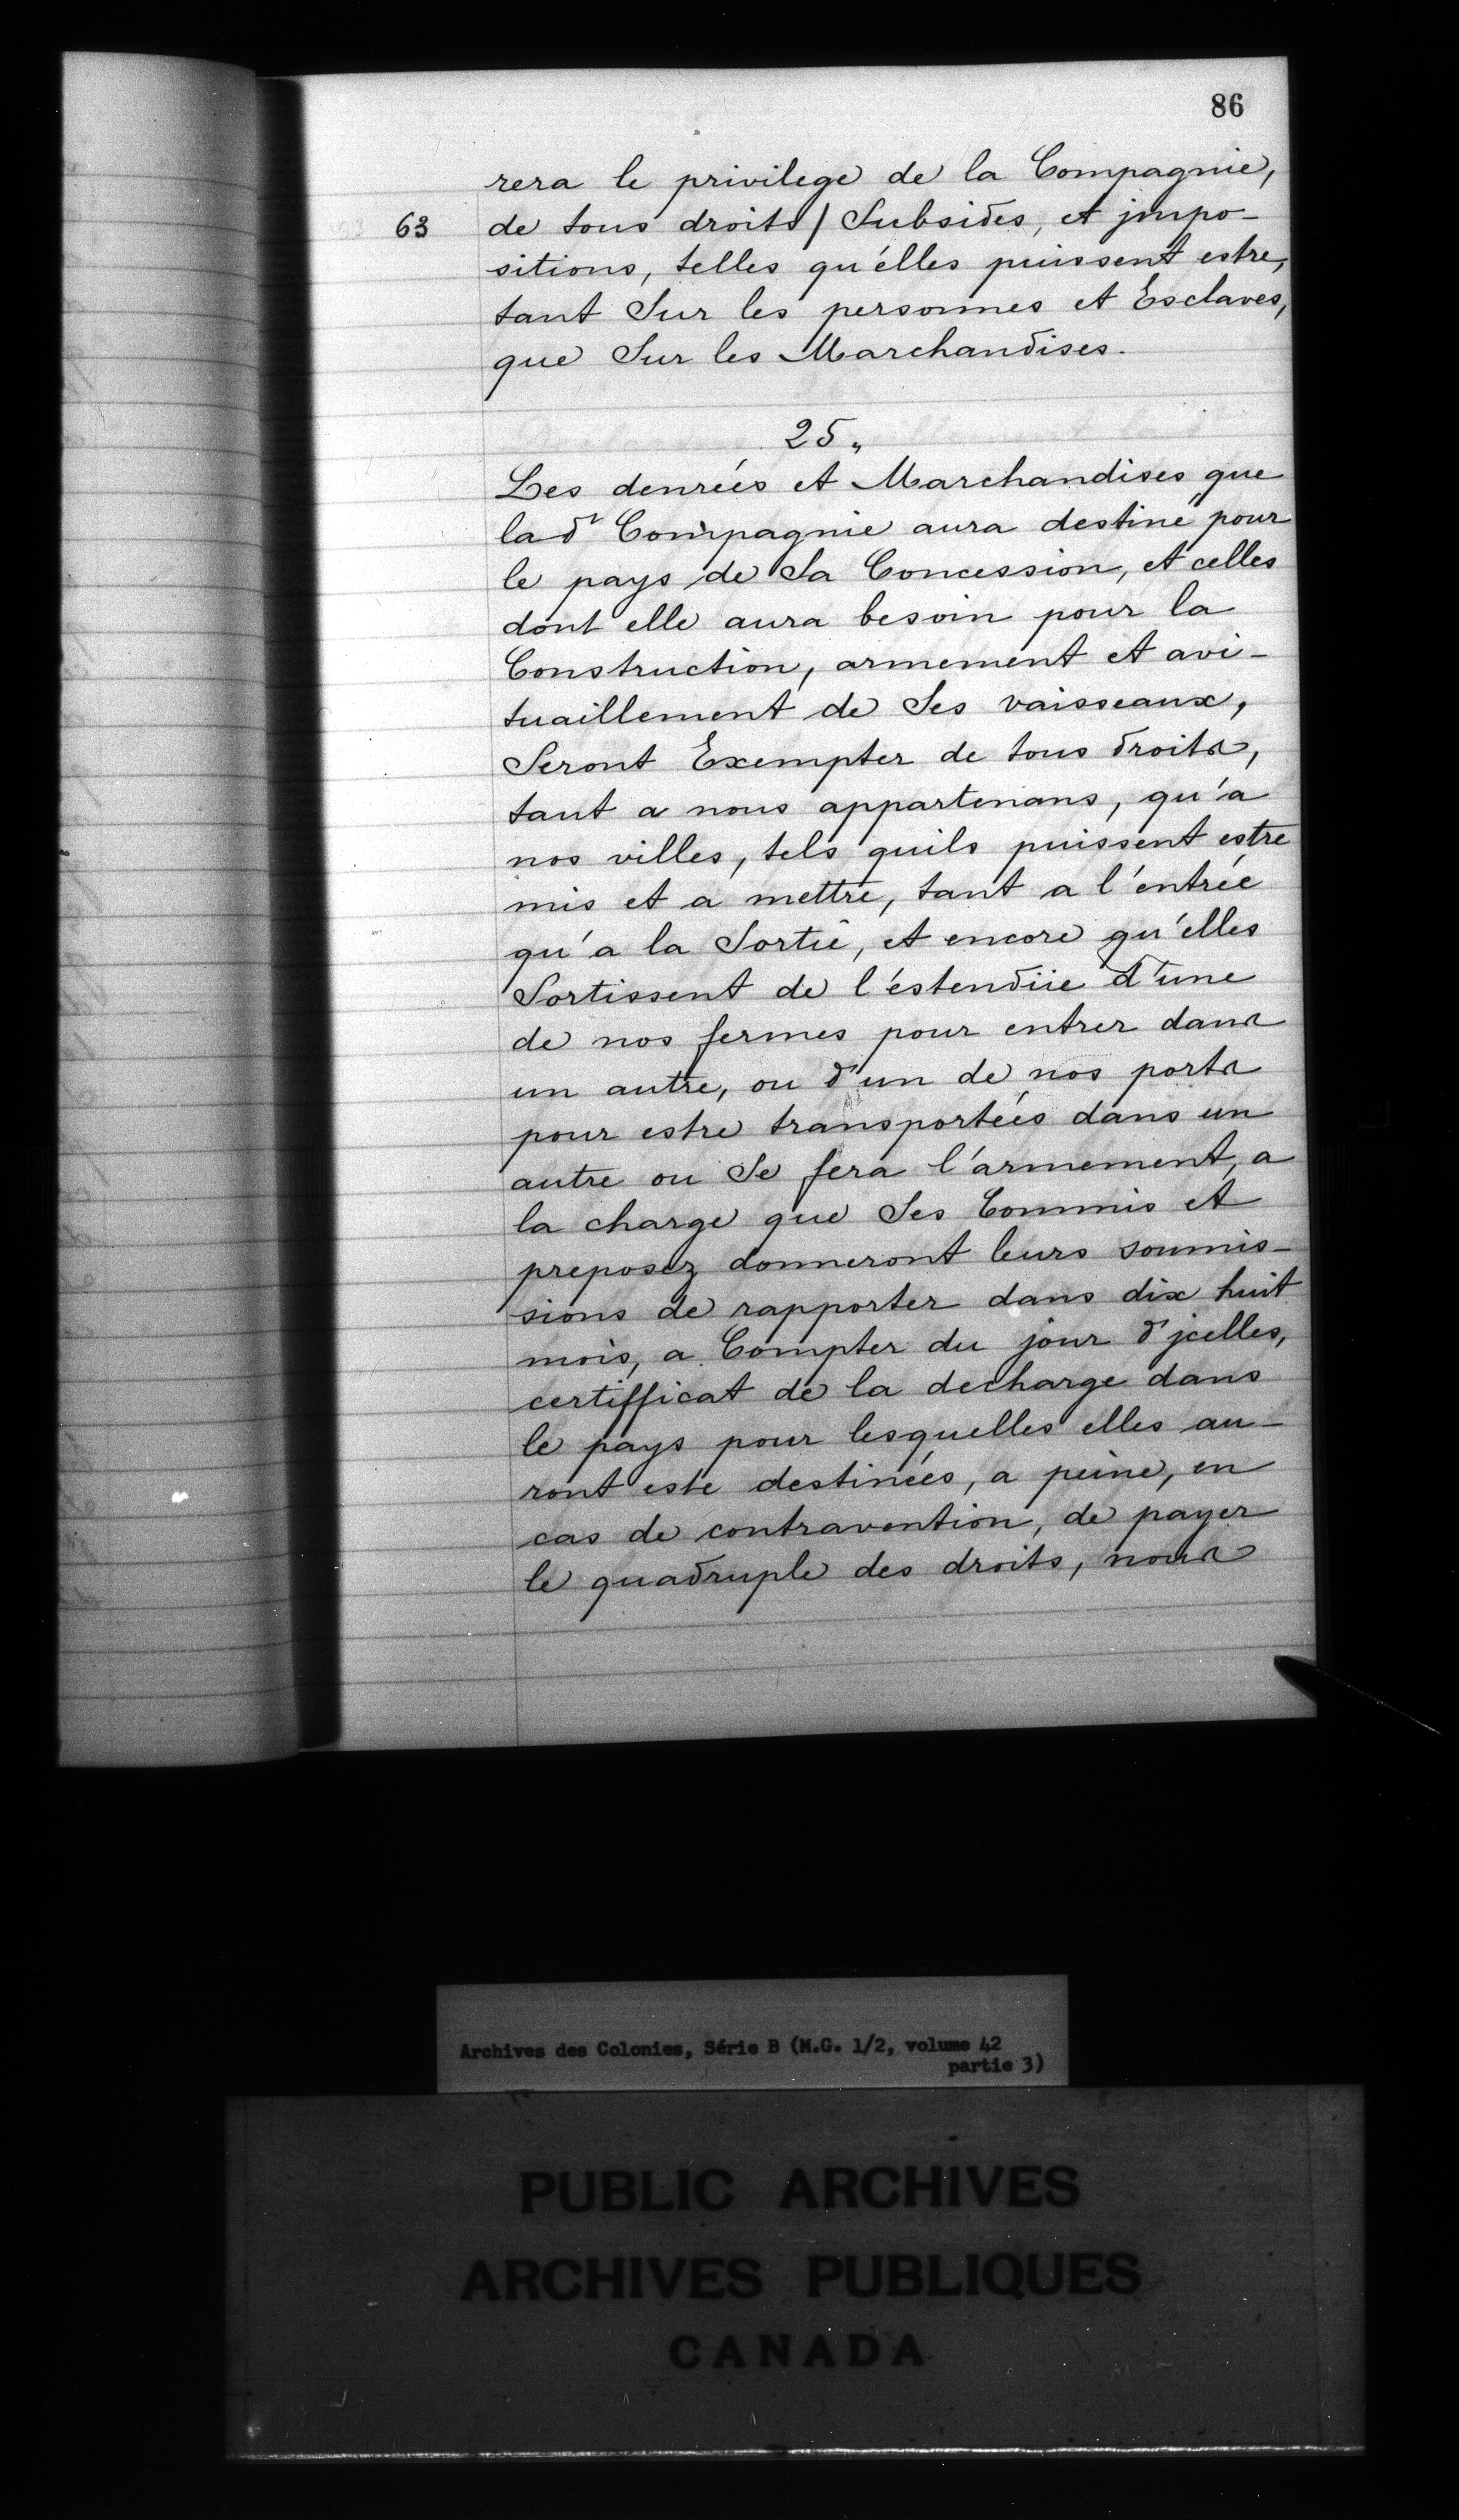 86
rera le privilege de la Compagnie,
63 de tous droits / Subsides, et jmpo-
sitions, telles qu'elles puissent estre,
tant Sur les personnes et Esclaves,
que Sur les Marchandises.
25.
Les denrées et Marchandises que
lad^e Compagnie aura destiné pour
le pays de Sa Concession, et celles
dont elle aura besoin pour la
Construction, armement et avi-
tuaillement de Ses vaisseaux,
Seront Exempter de tous droits,
tant a nous appartenans, qu'a
nos villes, tels quils puissent estre
mis et a mettre, tant a l'entrée
qu'a la Sortie, et encore qu'elles
Sortissent de l'estendüe d'une
de nos fermes pour entrer dans
un autre, ou d'un de nos ports
pour estre transportées dans un
autre ou Se fera l'armement, a
la charge que Ses Commis et
preposez donneront leurs soumis-
sions de rapporter dans dix huit
mois, a Compter du jour d'jcelles,
certifficat de la decharge dans
le pays pour lesquelles elles au-
ront esté destinées, a peine, en
cas de contravention, de payer
le quadruple des droits, nous
Archives des Colonies, Série B (M.G. 1/2, volume 42
partie 3)
PUBLIC ARCHIVES
ARCHIVES PUBLIQUES
CANADA